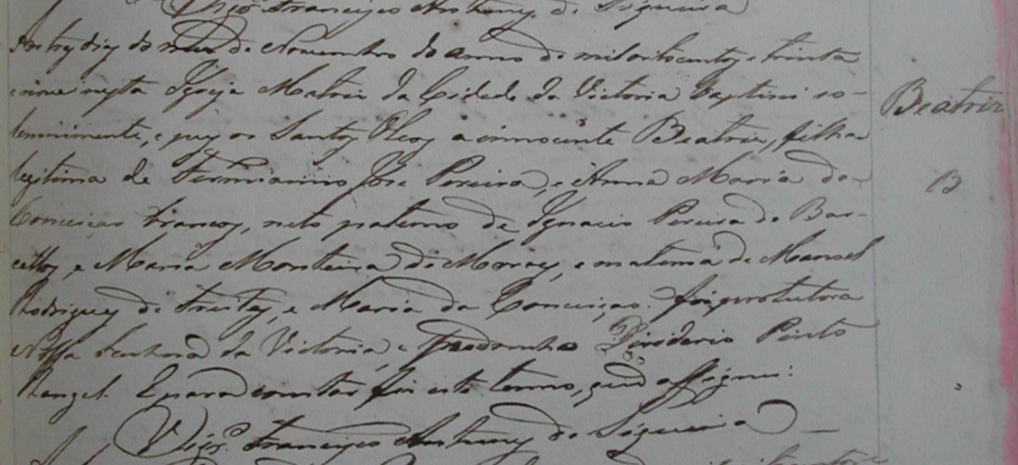 Vigrº Francisco Antunes de Siqueira
Aos tres dias do mes de Novembro do anno de mil oitocentos e trinta
e nove nesta Igreja Matriz da Cidade da Victoria Baptisei so-
lemnimente, e puz os Santos Oleos a innocente Beatriz, filha
legitima de Firmianno Jose Pereira, e Anna Maria da
Conceiçao Francos, neta paterna de Ignacio Pereira de Bar-
cellos, e Maria Monteira de Moraes, e materna de Manoel
Rodrigues de Freitas, e Maria da Conceiçao. foi protectora
Nossa Senhora da Victoria, e Padrinho Disiderio Pinto
Rangel. E para constar fiz este termo, que assignei.
Vigrº Francisco Antunes de Siqueira
Beatriz
B